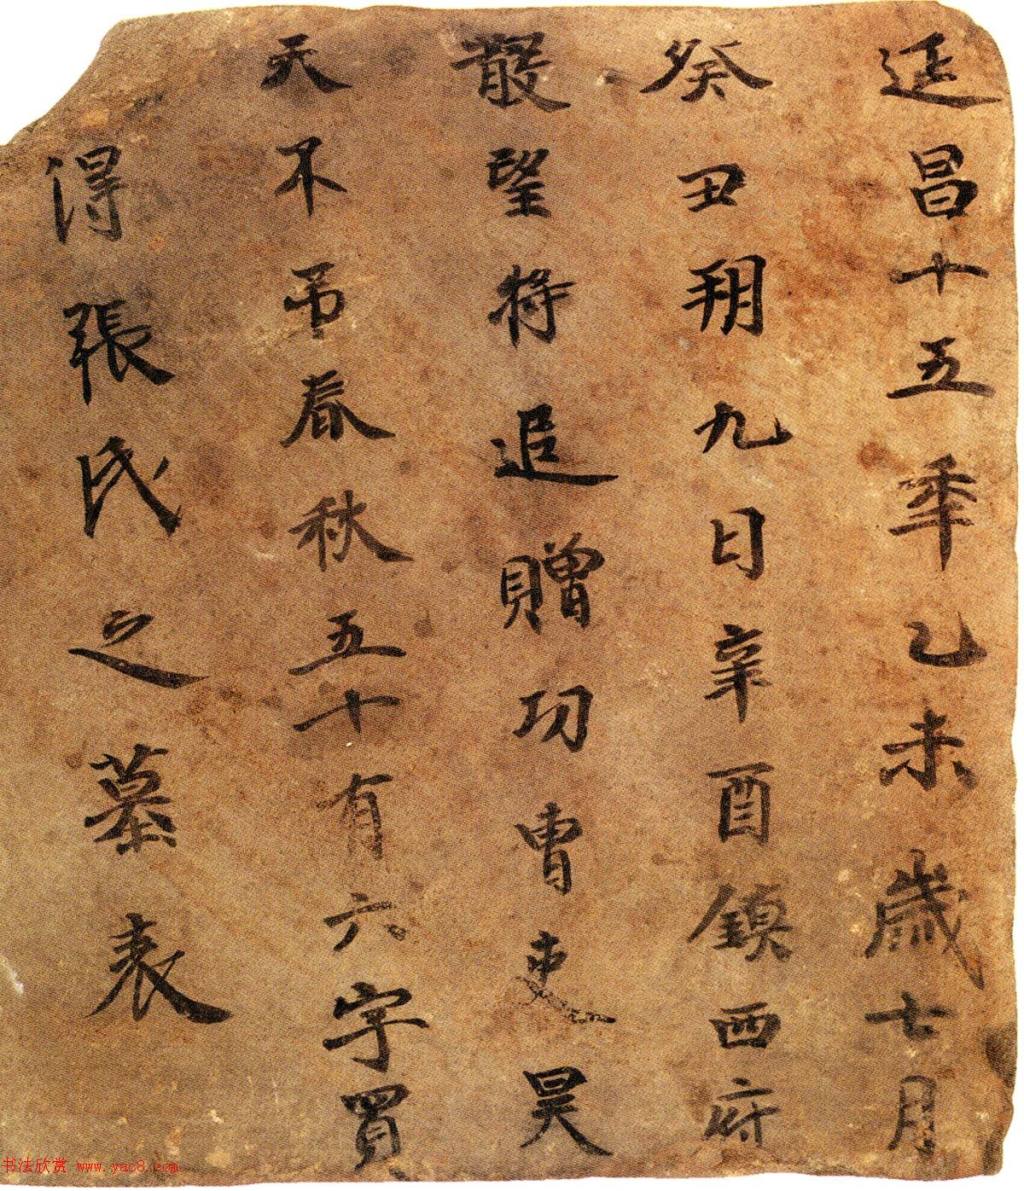 延昌十五年乙未歲七月
癸丑朔九日辛酉鎮西府
散望将追贈功曹吏昊
天不吊春秋五十有六字買
得張氏之墓表
书法欣赏 www.yac8.com